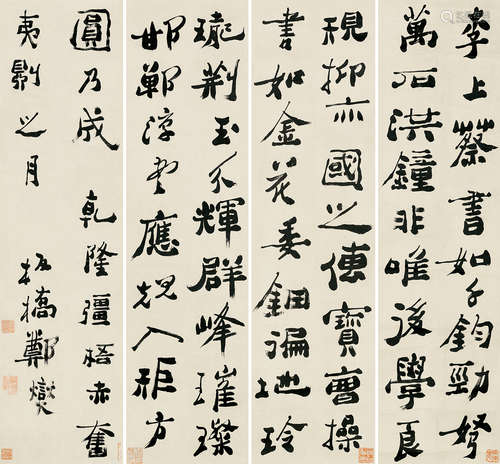 李上蔡書如千鈞勁弩
萬石洪鐘非唯後學良
規抑亦國之傳寶曹操
書如金花委鈿遍地玲
瓏荊玉分輝群峰璀璨
邯鄲淳書應規入矩方
圓乃成 乾隆彊梧赤奮
夷則之月
板橋鄭燮